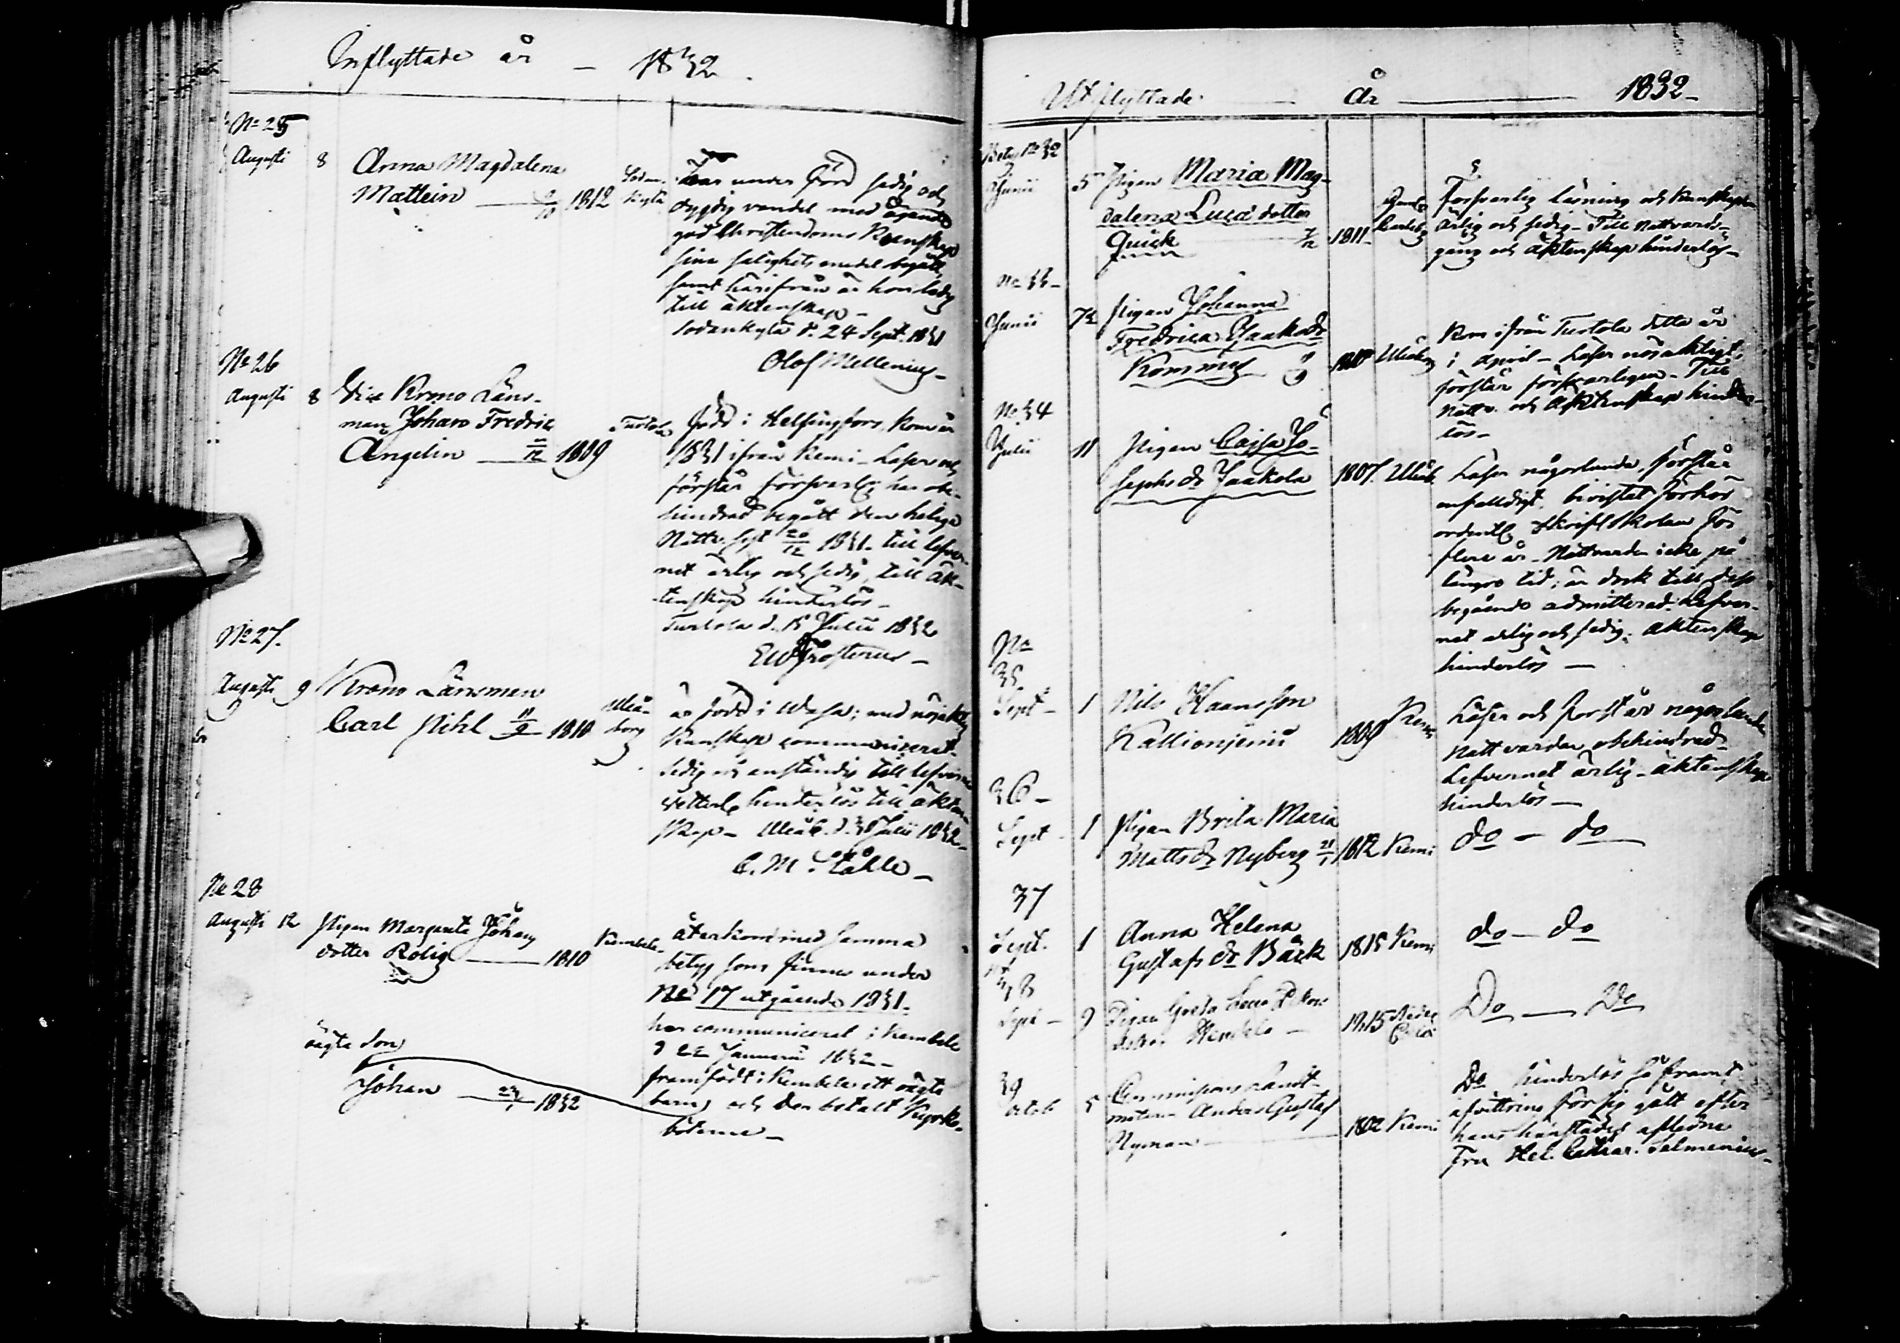 Inflyttade år — 1832.
No 25
Augusti 8 Anna Magdalena
Mattein 1812
under förd sedig och
dygdig vandel med
god Christendoms Kunskap
sina salighets medel begått
samt härifrån är hon ledig
till äktenskap —
Sodankylä d. 24 Sept. 1831
Olof Mellenius —
No 26
Augusti 8 Vice Krono Läns-
man Johan Fredric
Angelin 1809 Turtola
född i Helsingfors, kom år
1831 ifrån Kemi — Läser och
förstår försvarlig har obe-
hindrad begått den helga
Nattv. sist 1831. till lefver-
net ärlig och sedig, till äk-
tenskap hinderlös —
Turtola d. 15 Julii 1832
Frosterus —
No 27.
Augusti 9 Krono Länsman
Carl Pihl 1810 Uleå-
borg
är född i Wasa; med nöjaktig
Kunskap communicerat.
Sedig och anständig till lefverne
hinderlös till äkten-
skap — Uleåb. d. Julii 1832 —
C. M. Ståhle —
No 28
Augusti 12 Pigan Margareta Johans
dotter Rolig — 1810 Kembele
återkom med samma
betyg som finnes under
No 17 utgående 1831.
har communicerat i Kembele
d 22 Januarii 1832 —
framfödt i Kembele ett oägta
barn, och der betalt Kyrko-
böterne —
oägta son
Johan 1832
Utflyttade — År — 1832 —
Betyg No 32
Junii 5 Pigan Maria Mag-
dalena Lucä dotter
Quick 1811
Försvarlig läsning och Kunskap
Ärlig och sedig — Till Nattvards-
gång och Äktenskap hinderlös —
No 33 —
Junii 7 Pigan Johanna
Fredrica Isaksdr
Uleåborg
Kom ifrån Turtola detta år
i April — Läser nöjaktigt,
förstår försvarligen — Till
Nattv. och Äktenskap hinder-
lös —
No 34
Julii 11 Pigan Cajsa Jo-
sephs dr Jaakola 1807. Uleåb.
Läser någorlunda, förstår
enfaldigt. bivistat förhör
ordentl. Skriftskolan för
flere år. Nattvarden icke på
längre tid; är dock till dess
begående admitterad. Lefver-
net ärlig och sedig. Äktenskap
hinderlös —
No
35
Sept — 1 Nils Hansson
1809 Kemi
Läser och förstår någorlunda
Nattvarden obehindrad
Lefvernet ärlig — äktenskap
hinderlös —
36 —
Sept — 1 Pigan Brita Maria
Matts dr Nyberg 1812 Kemi
do — do
37
Sept. 1 Anna Helena
Gustafs dr Bäck 1815 Kemi
do — do
38
Sept — 9 Pigan Greta
1815
Do — Do
39
Octob 5 Commissions Landt-
mätaren Anders Gustaf
Nyman 1802 Kemi
Do hinderlös så framt
afvittring för sig gått efter
hans hänsofne aflidne
Fru Hel. Cathar. Salmenius —